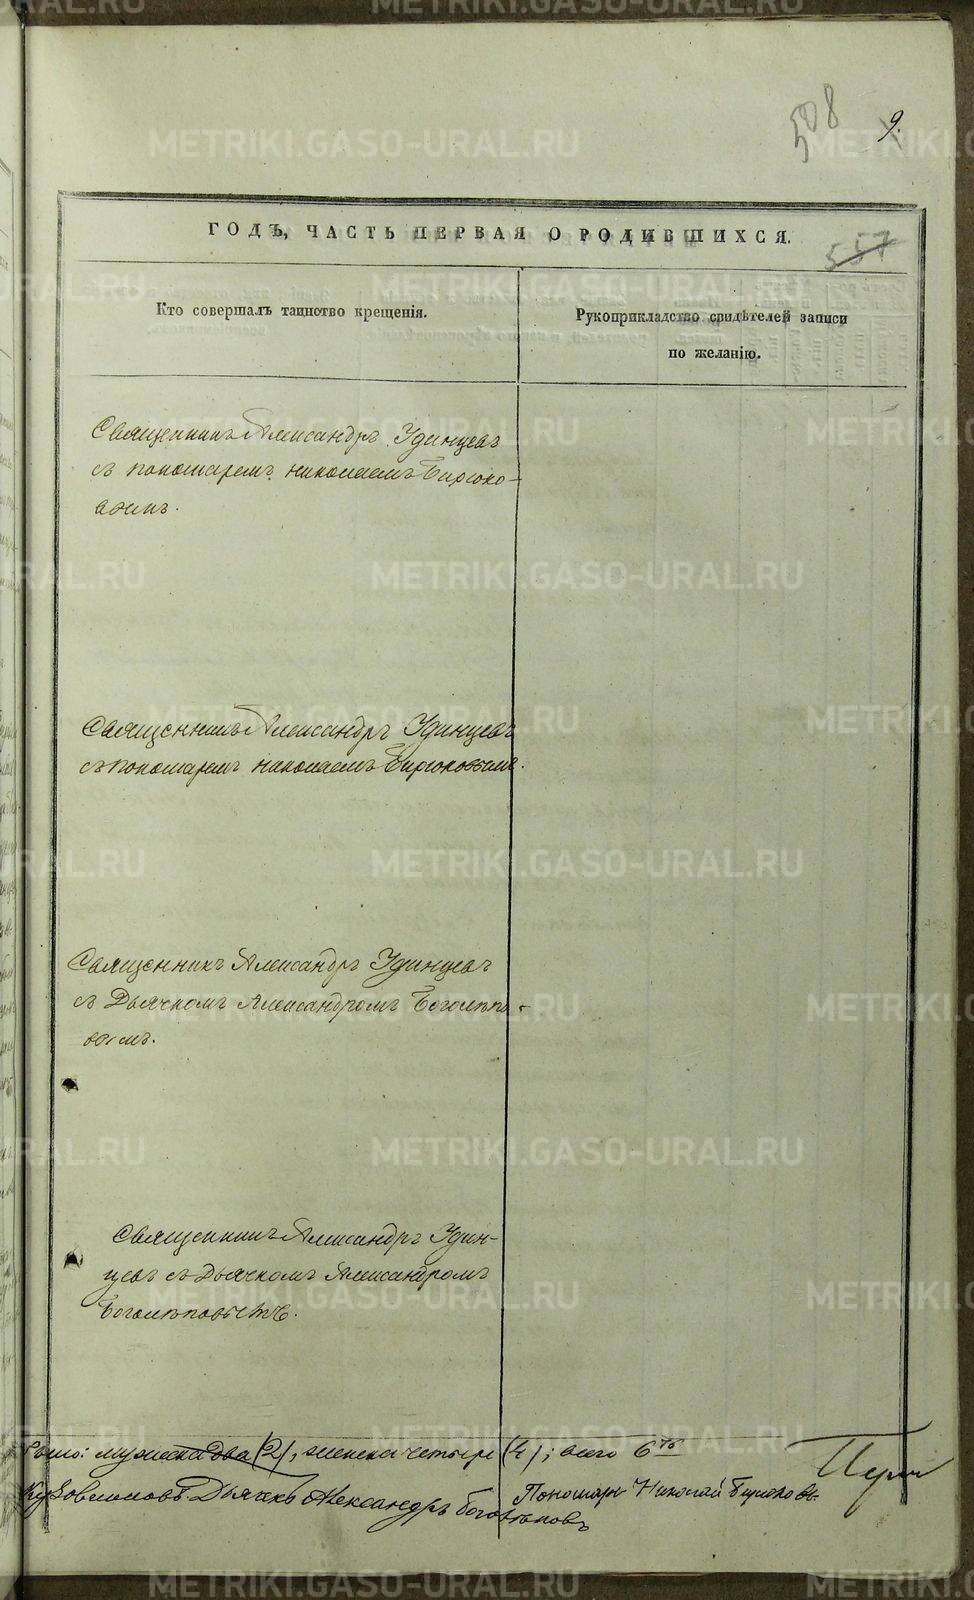 508
9.
ГОДЪ, ЧАСТЬ ПЕРВАЯ О РОДИВШИХСЯ.
557
Кто совершалъ таинство крещенія.
Рукоприкладство свидѣтелей записи
по желанію.
Священникъ Александръ Удинцевъ
съ пономаремъ Николаемъ Бирюко-
вымъ.
Священникъ Александръ Удинцевъ
съ пономаремъ Николаемъ Бирюковымъ.
Священникъ Александръ Удинцевъ
съ Дьячкомъ Александромъ Боголѣпо-
вымъ.
Священникъ Александръ Удин-
цевъ съ Дьячкомъ Александромъ
Боголѣповымъ.
мужеска два (2), женска четыре (4); всего 6ть
Дьячекъ Александръ Боголѣповъ
Пономарь Николай Бирюковъ.
METRIKI.GASO-URAL.RU